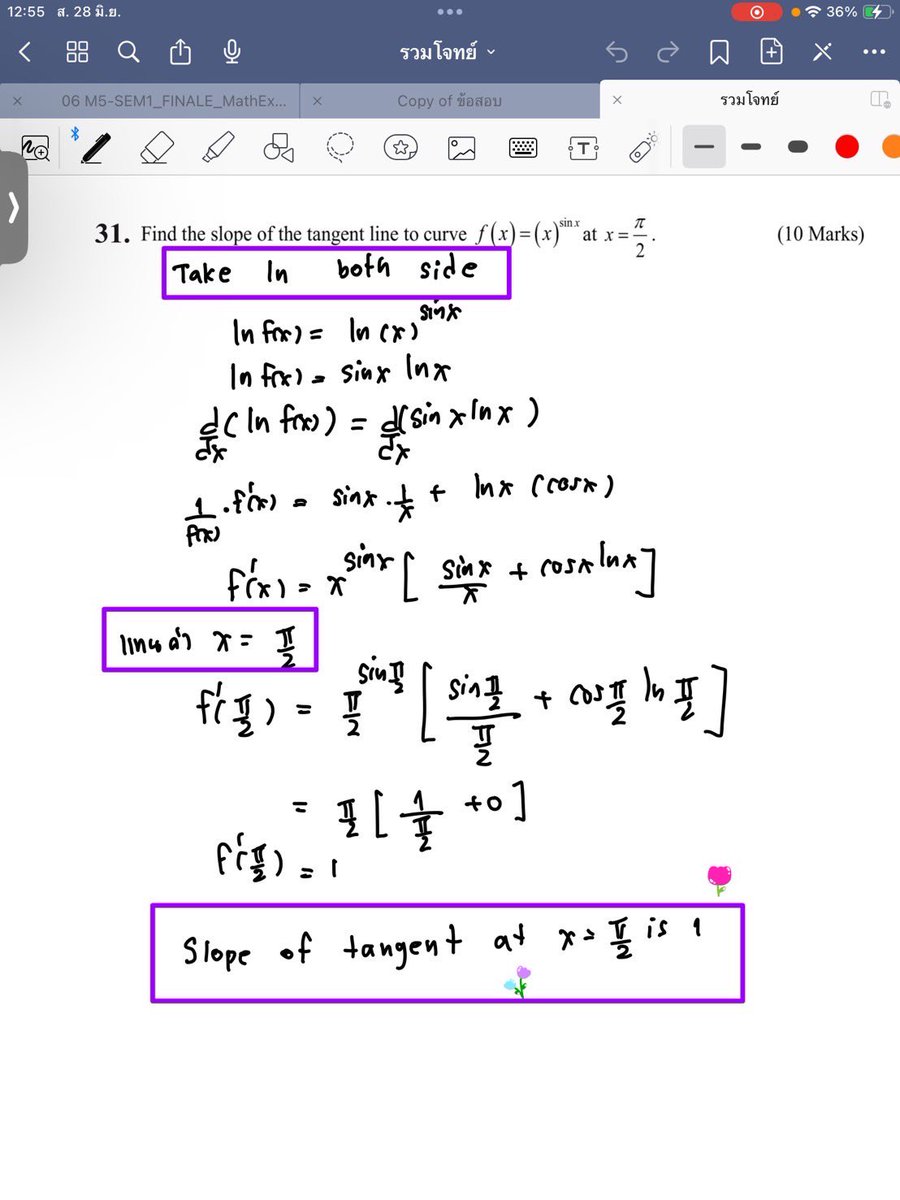 12:55 ส. 28 มิ.ย. 36%
รวมโจทย์
06 M5-SEM1_FINALE_MathEx... Copy of ข้อสอบ รวมโจทย์
31. Find the slope of the tangent line to curve f(x)=(x)^{sin x} at x=π/2. (10 Marks)
Take ln both side
ln f(x) = ln (x)^{sinx}
ln f(x) = sinx lnx
d/dx (ln f(x)) = d/dx (sin x ln x)
1/f(x) · f'(x) = sinx · 1/x + lnx (cosx)
f'(x) = x^{sinx} [ sinx/x + cosx lnx ]
แทนค่า x = π/2
f'(π/2) = π/2^{sin π/2} [ sin π/2 / π/2 + cos π/2 ln π/2 ]
= π/2 [ 1/π/2 +0 ]
f'(π/2) = 1
Slope of tangent at x = π/2 is 1